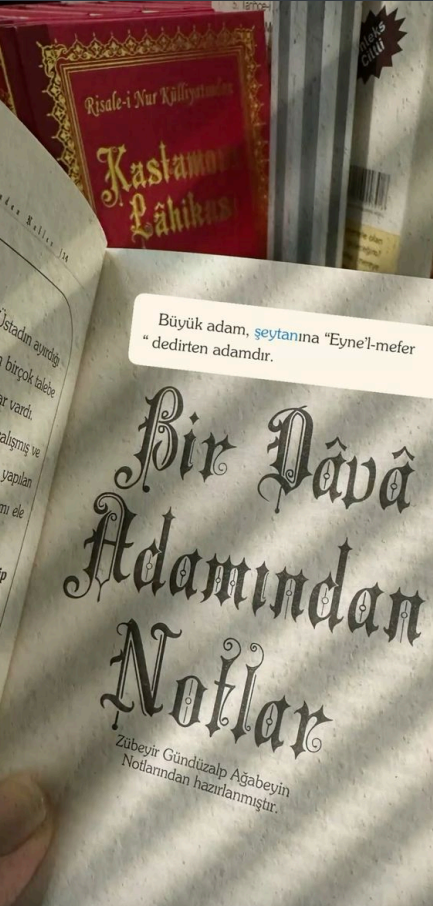 Risale-i Nur Külliyatından
Lâhikası
Üstadın ayırdığı
birçok talebe
ar vardı.
alışmış ve
yapılan
mı ele
Büyük adam, şeytanına “Eyne’l-mefer
“ dedirten adamdır.
Bir Dâvâ
Adamından
Notlar
Zübeyir Gündüzalp Ağabeyin
Notlarından hazırlanmıştır.